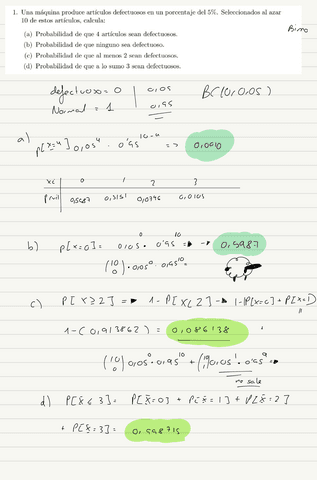 1. Una máquina produce artículos defectuosos en un porcentaje del 5%. Seleccionados al azar
10 de estos artículos, calcula:
Bino
(a) Probabilidad de que 4 artículos sean defectuosos.
(b) Probabilidad de que ninguno sea defectuoso.
(c) Probabilidad de que al menos 2 sean defectuosos.
(d) Probabilidad de que a lo sumo 3 sean defectuosos.
defectuoso = 0 | 0,05
Normal = 1 | 0,95
a)
P[x=4] 0,05⁴ · 0,95¹⁰⁻⁴ =>
xi 0 1 2 3
0,5987 0,3151 0,0746 0,0105
b) P[x=0] = 0,05⁰ · 0,95¹⁰ → 0,5987
(10 0) · 0,05⁰ · 0,95¹⁰ =
c) P[X≥2] = 1 - P[X<2] → 1-(P[x=0] + P[x=1])
1-(0,913862) = 0,086138
(10 0) 0,05⁰ · 0,95¹⁰ + (10 1) 0,05¹ · 0,95⁹ =
no sale
d) P[X≤3] = P[X=0] + P[X=1] + P[X=2]
+ P[X=3] =